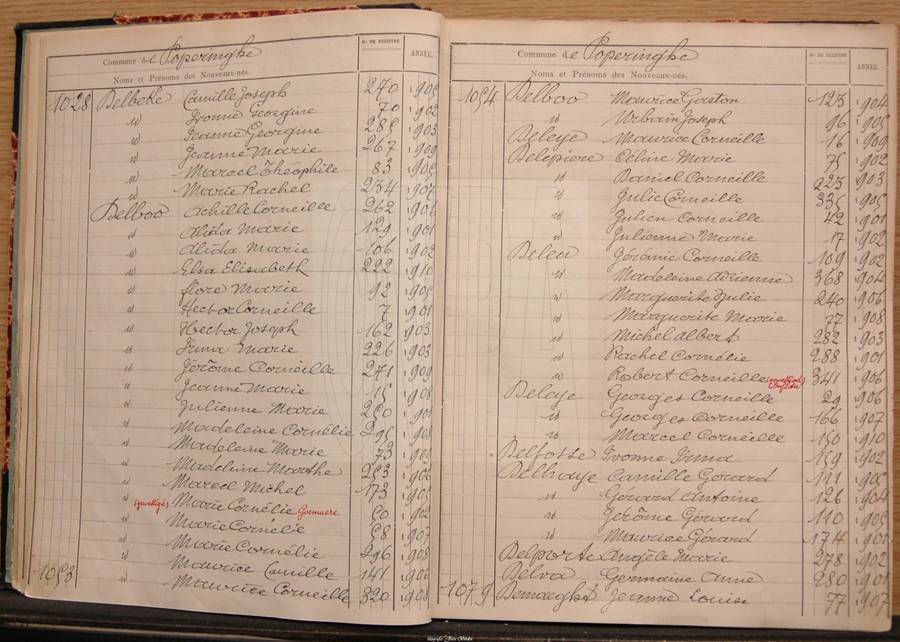 Commune de Poperinghe
Nos DE REGISTRE
ANNÉE.
Noms et Prénoms des Nouveaux-nés.
1028 Delbeke Camille Joseph 270 1905
id Ivonne Georgine 70 1902
id Jeanne Georgine 285 1903
id Jeanne Marie 267 1909
id Marcel Théophile 83 1905
id Marie Rachel 234 1907
Delboo Achille Corneille 262 1906
id Alida Marie 129 1901
id Alida Marie 106 1902
id Elsa Elisabeth 222 1910
id Flore Marie 92 1905
id Hector Corneille 7 1901
id Hector Joseph 162 1903
id Irma Marie 226 1903
id Jérôme Corneille 271 1909
id Jeanne Marie 15 1908
id Julienne Marie 250 1901
id Madeleine Cornélie 295 1908
id Madeleine Marie 73 1909
id Madeleine Marthe 253 1906
id Marcel Michel 173 1905
id (gewettigd) Marie Cornélie Goemaere 50 1902
id Marie Cornélie 58 1907
id Marie Cornélie 296 1908
id Maurice Camille 141 1906
1053 id Maurice Corneille 320 1908
Commune de Poperinghe
Nos DE REGISTRE
ANNÉE.
Noms et Prénoms des Nouveaux-nés.
1054 Delboo Maurice Gaston 123 1904
id Urbain Joseph 96 1905
Deleye Maurice Corneille 16 1909
Delepiere Céline Marie 75 1902
id Daniel Corneille 223 1903
id Julie Corneille 335 1905
id Julien Corneille 42 1901
id Julienne Marie 17 1902
Deleu Jérémie Corneille 109 1902
id Madeleine Adrienne 368 1904
id Marguerite Julie 240 1906
id Marguerite Marie 77 1908
id Michel Albert 282 1903
id Rachel Cornélie 288 1901
id Robert Corneille (gewettigd) 341 1906
Deleye Georges Corneille 29 1906
id Georges Corneille 166 1907
id Marcel Corneille 150 1910
Delfosse Ivonne Irma 159 1902
Delhaye Camille Gérard 111 1905
id Gérard Antoine 126 1904
id Jérôme Gérard 110 1905
id Maurice Gérard 174 1901
Delporte Angèle Marie 278 1902
Delva Germaine Anne 280 1901
1079 Demaeght Jeanne Louise 77 1907